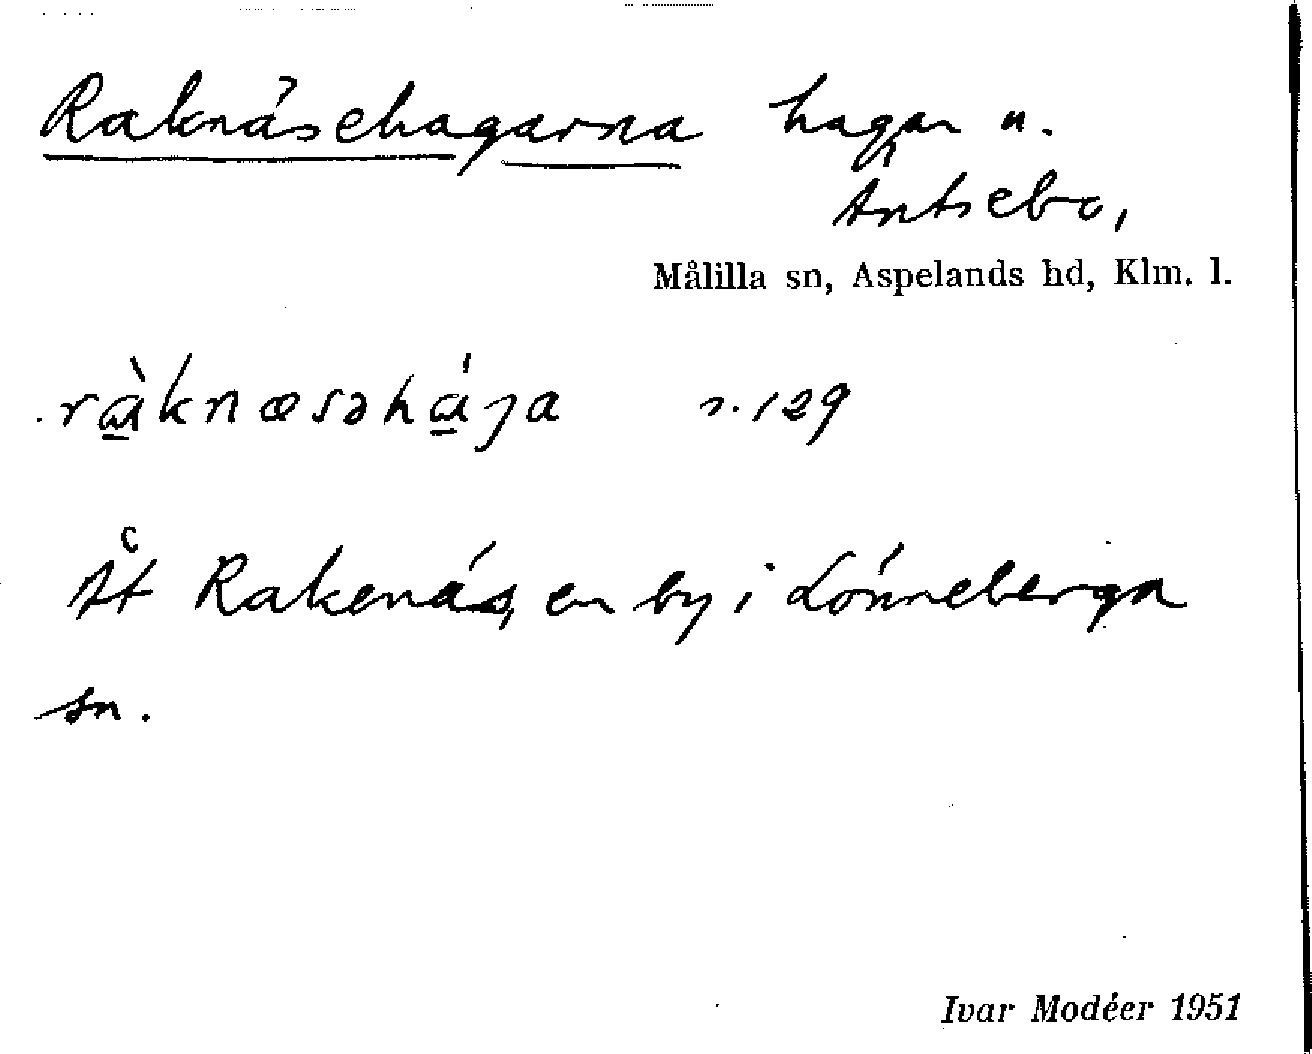 Raknäsehagarna hagar u.
Antsebo,
Målilla sn, Aspelands hd, Klm. l.
ràknæsəhája n. 129
Åt Rakenäs, en by i Lönneberga
sn.
Ivar Modéer 1951